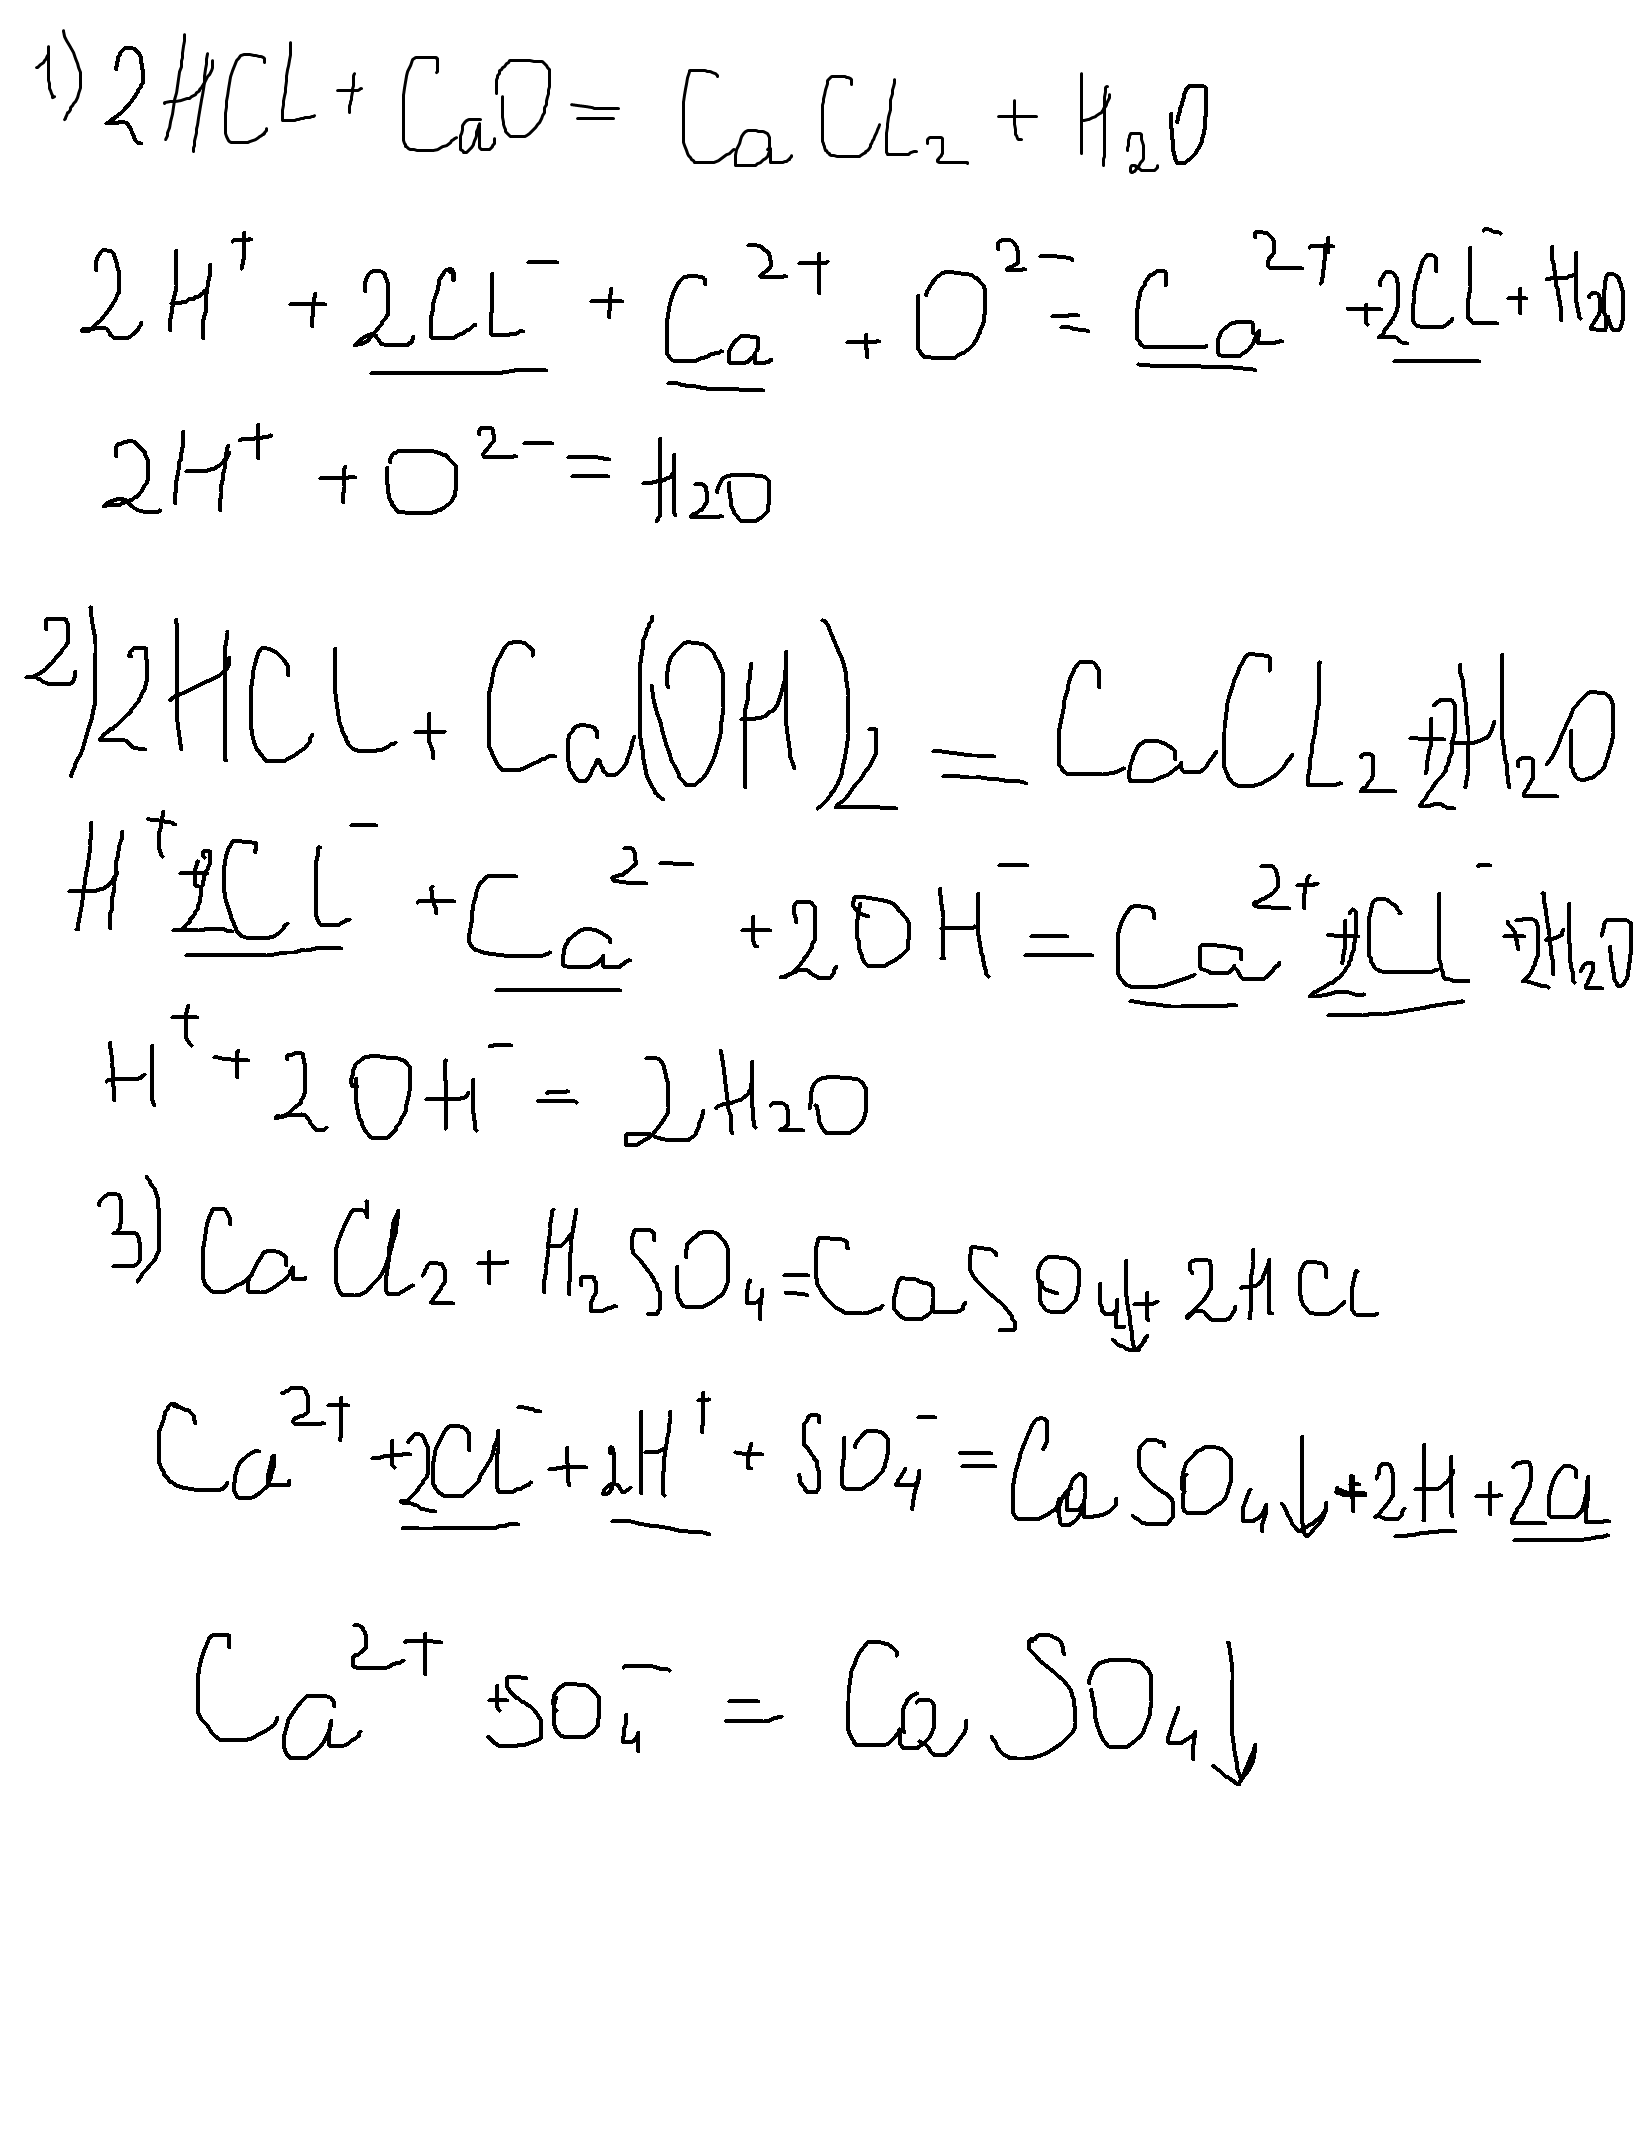 1) 2HCL + CaO = CaCL₂ + H₂O
2H⁺ + 2CL⁻ + Ca²⁺ + O²⁻ = Ca²⁺ + 2Cl⁻ + H₂O
2H⁺ + O²⁻ = H₂O
2) 2HCL + Ca(OH)₂ = CaCL₂ + 2H₂O
H⁺ + 2Cl⁻ + Ca²⁻ + 2OH⁻ = Ca²⁺ + 2Cl⁻ + 2H₂O
H⁺ + 2OH⁻ = 2H₂O
3) CaCl₂ + H₂SO₄ = CaSO₄↓ + 2HCL
Ca²⁺ + 2Cl⁻ + 2H⁺ + SO₄⁻ = CaSO₄↓ + 2H + 2Cl
Ca²⁺ + SO₄⁻ = CaSO₄↓